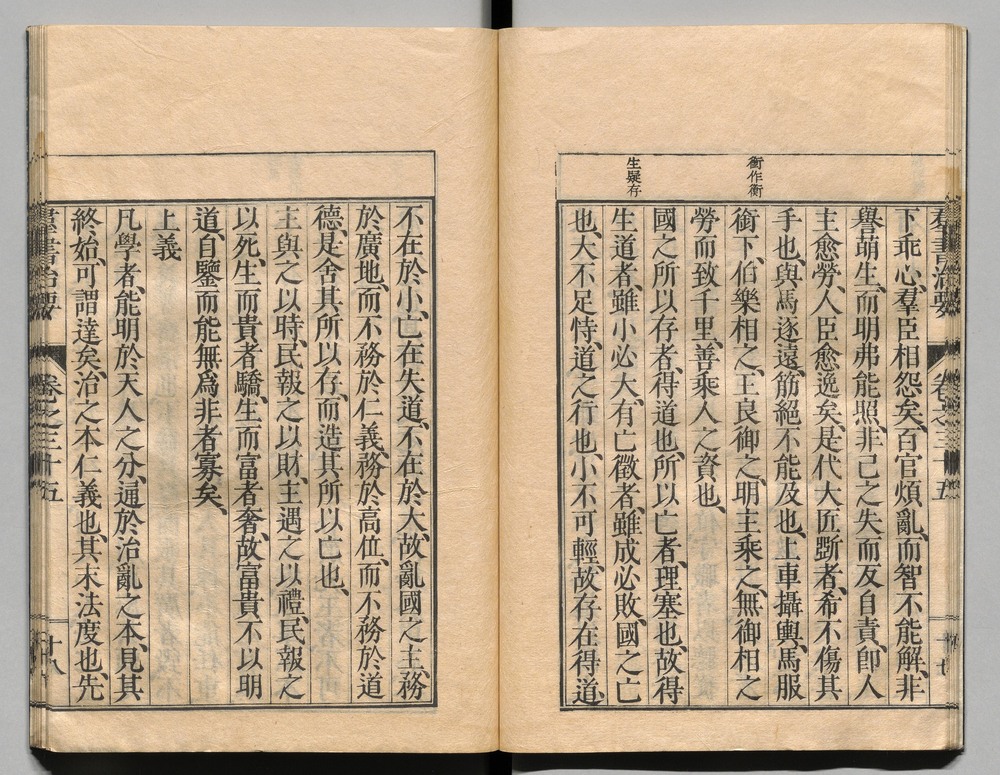 羣書治要 卷之三十五 十七
下乖心、羣臣相怨矣、百官煩亂、而智不能解、非
譽萌生、而明弗能照、非己之失而反自責、卽人
主愈勞、人臣愈逸矣、是代大匠斲者、希不傷其
手也、與馬逐遠、筋絕不能及也、上車攝輿、馬服
衡下、伯樂相之、王良御之、明主乘之、無御相之
勞而致千里、善乘人之資也、
國之所以存者、得道也、所以亡者、理塞也、故得
生道者、雖小必大、有亡徵者、雖成必敗、國之亡
也、大不足恃、道之行也、小不可輕、故存在得道、
衝作衡
生疑存
不在於小、亡在失道、不在於大、故亂國之主、務
於廣地、而不務於仁義、務於高位、而不務於道
德、是舍其所以存、而造其所以亡也、
主與之以時、民報之以財、主遇之以禮、民報之
以死、生而貴者驕、生而富者奢、故富貴不以明
道、自鑒而能無爲非者寡矣、
上義
凡學者、能明於天人之分、通於治亂之本、見其
終始、可謂達矣、治之本仁義也、其末法度也、先
羣書治要 卷之三十五 十八